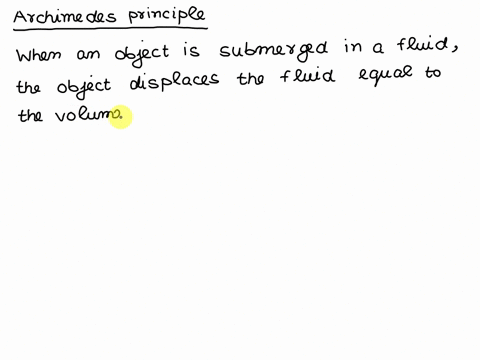 Archimedes principle
When an object is submerged in a fluid,
the object displaces the fluid equal to
the volume